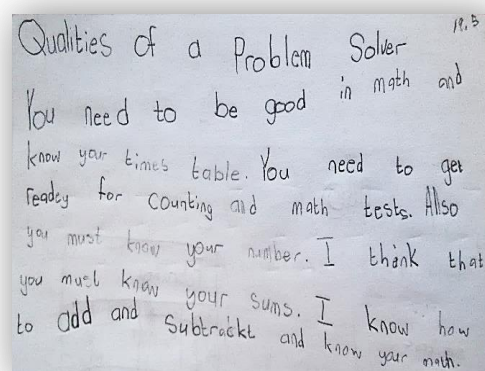 19.5
Qualities of a Problem Solver
You need to be good in math and
know your times table. You need to get
readey for counting and math tests. Allso
you must know your number. I think that
you must know your sums. I know how
to add and subtrackt and know your math.